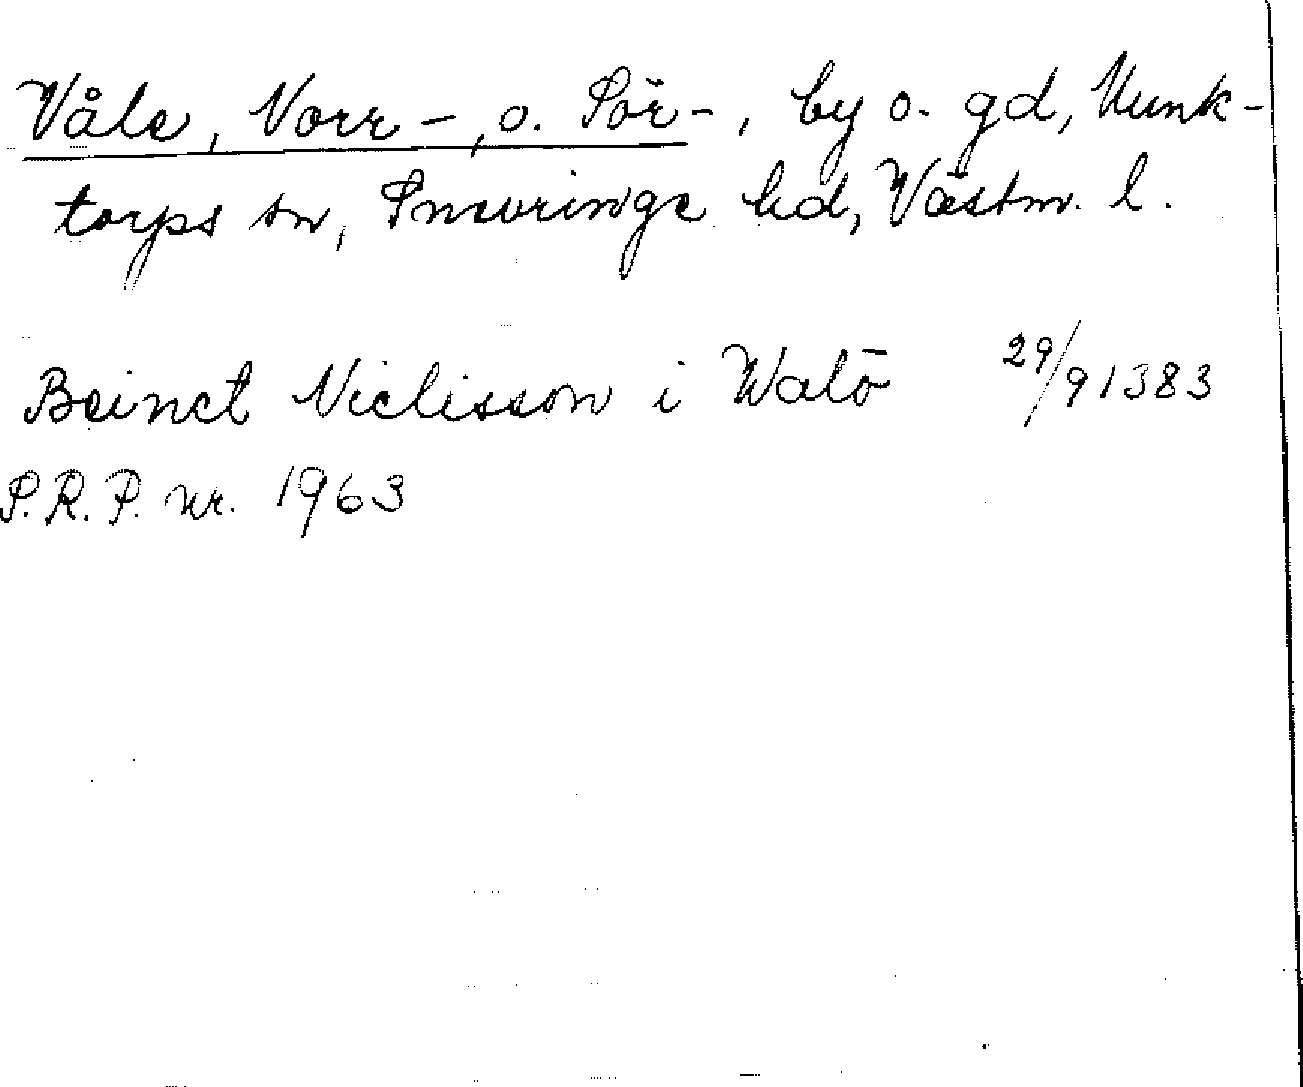 Våle, Norr-, o. Sör-, by o. gd, Munk-
torps sn, Snevringe hd, Västm. l.
Beinct Niclisson i Walö 29/9 1383
S.R.P. nr. 1963